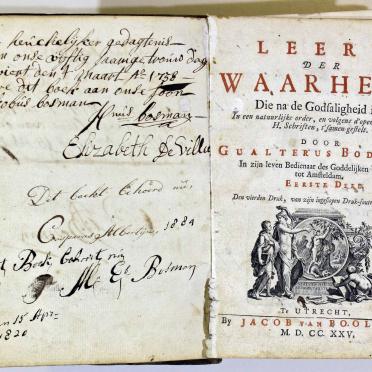 heuchelijker gedagtenis
onze vyftig jaarige trouw dag
den 4 maart Ao 1758
dit boek aan onse soon
Jacobus bosman
bosman
Elizabeth De Villie
Dit boekt behoord nu,
1884
Boek behoort nu
Bosman
15 Apr
1820
LEER
DER
WAARHE
Die na de Godsaligheid i
In een natuurlijke order, en volgens d'ope
H. Schriften, t'samen gestelt.
DOOR
GUALTERUS BOD
In zijn leven Bedienaar des Goddelijken
tot Amsteldam.
EERSTE DEEL
Den vierden Druk, van zijn ingeslopen Druk-fout
Te UTRECHT,
By JACOB VAN POOL
M. D. CC. XXV.